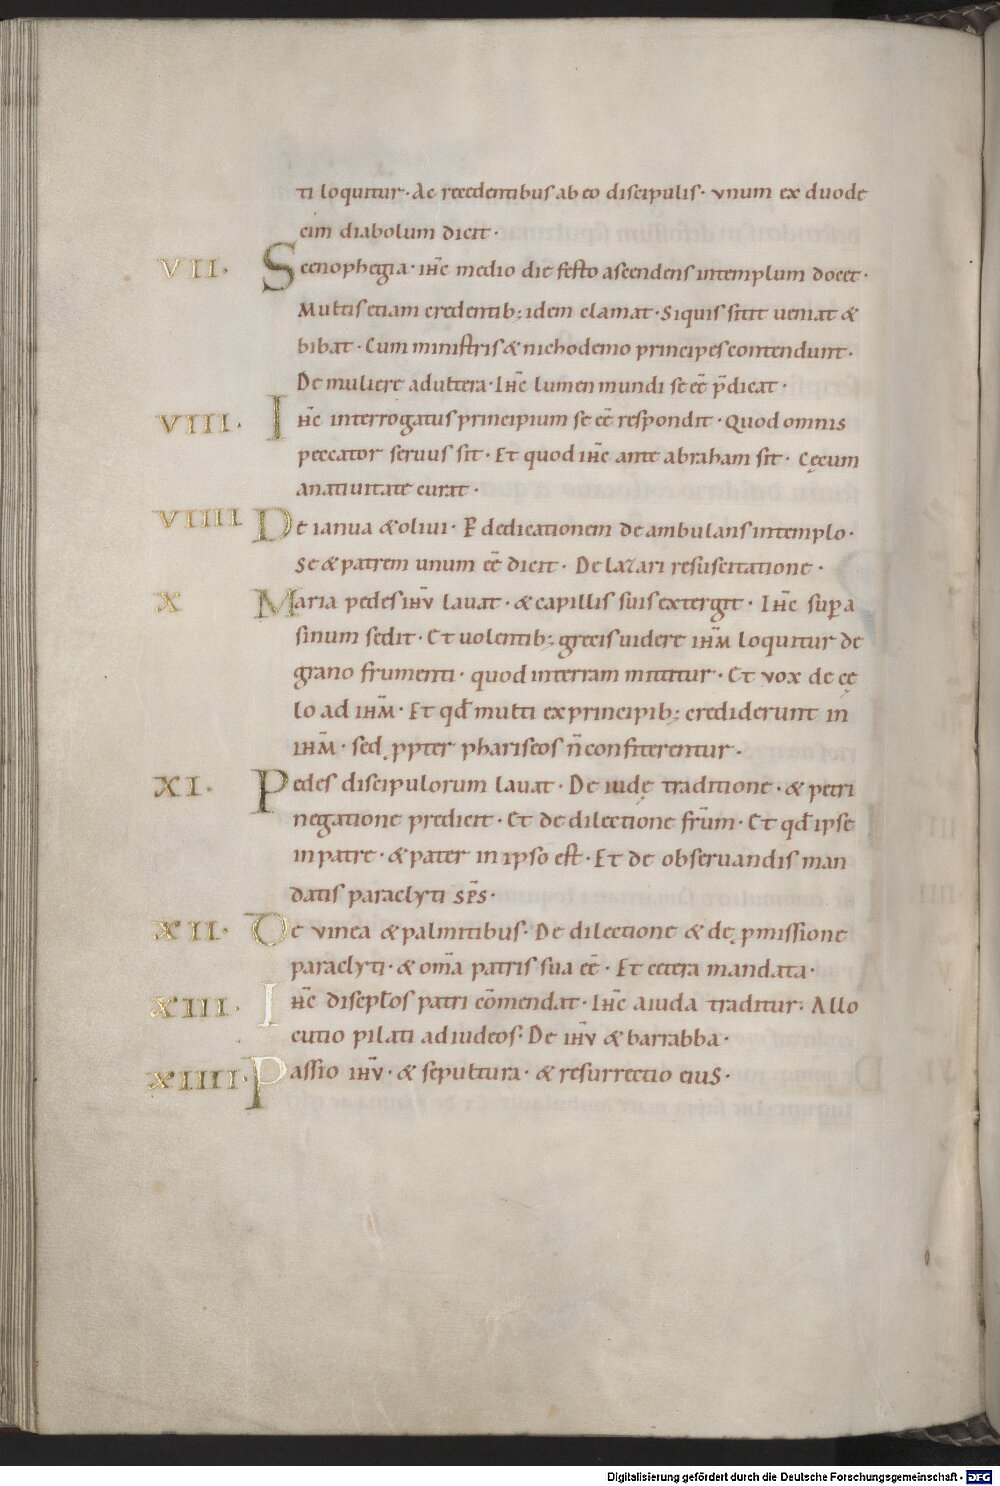 ti loquitur · Ac recedentibus ab eo discipulis · vnum ex duode
cim diabolum dicit ·
VII · Scenophegia · ihc̄ medio die festo ascendens intemplum docet ·
Multis etiam credentib; idem clamat · Siquis sitit ueniat &
bibat · Cum ministris & nichodemo principes contendunt ·
De muliere adultera · Ihc̄ lumen mundi se eē p̄dicat ·
VIII · Ihc̄ interrogatus principium se eē respondit · Quod omnis
peccator seruus sit · Et quod ihc̄ ante abraham sit · Cęcum
anatiuitate curat ·
VIIII De ianua & oliui · P dedicationem deambulans intemplo ·
Se & patrem unum eē dicit · De lazari resuscitatione ·
X Maria pedes ihv̄ lauat · & capillis suis extergit · Ihc̄ supa
sinum sedit · Et uolentib; grecis uidere ihm̄ loquitur de
grano frumenti · quod interram mittitur · Et vox de cę
lo ad ihm̄ · Et qd̄ multi exprincipib; crediderunt in
ihm̄ · sed ppter phariseos n̄ confiterentur ·
XI · Pedes discipulorum lauat · De iudę traditione · & petri
negatione predicit · Et de dilectione frm̄ · Et qd̄ ipse
in patre · & pater in ipso est · Et de obseruandis man
datis paraclyti sp̄s ·
XII · De vinea & palmitibus · De dilectione & de pmissione
paraclyti · & om̄a patris sua eē · Et cetera mandata ·
XIII · Ihc̄ discipl̄os patri cōmendat · Ihc̄ aiuda traditur · Allo
cutio pilati ad iudeos · De ihv̄ & barrabba ·
XIIII · Passio ihv̄ · & sepultura · & resurrectio eius ·
Digitalisierung gefördert durch die Deutsche Forschungsgemeinschaft - DFG